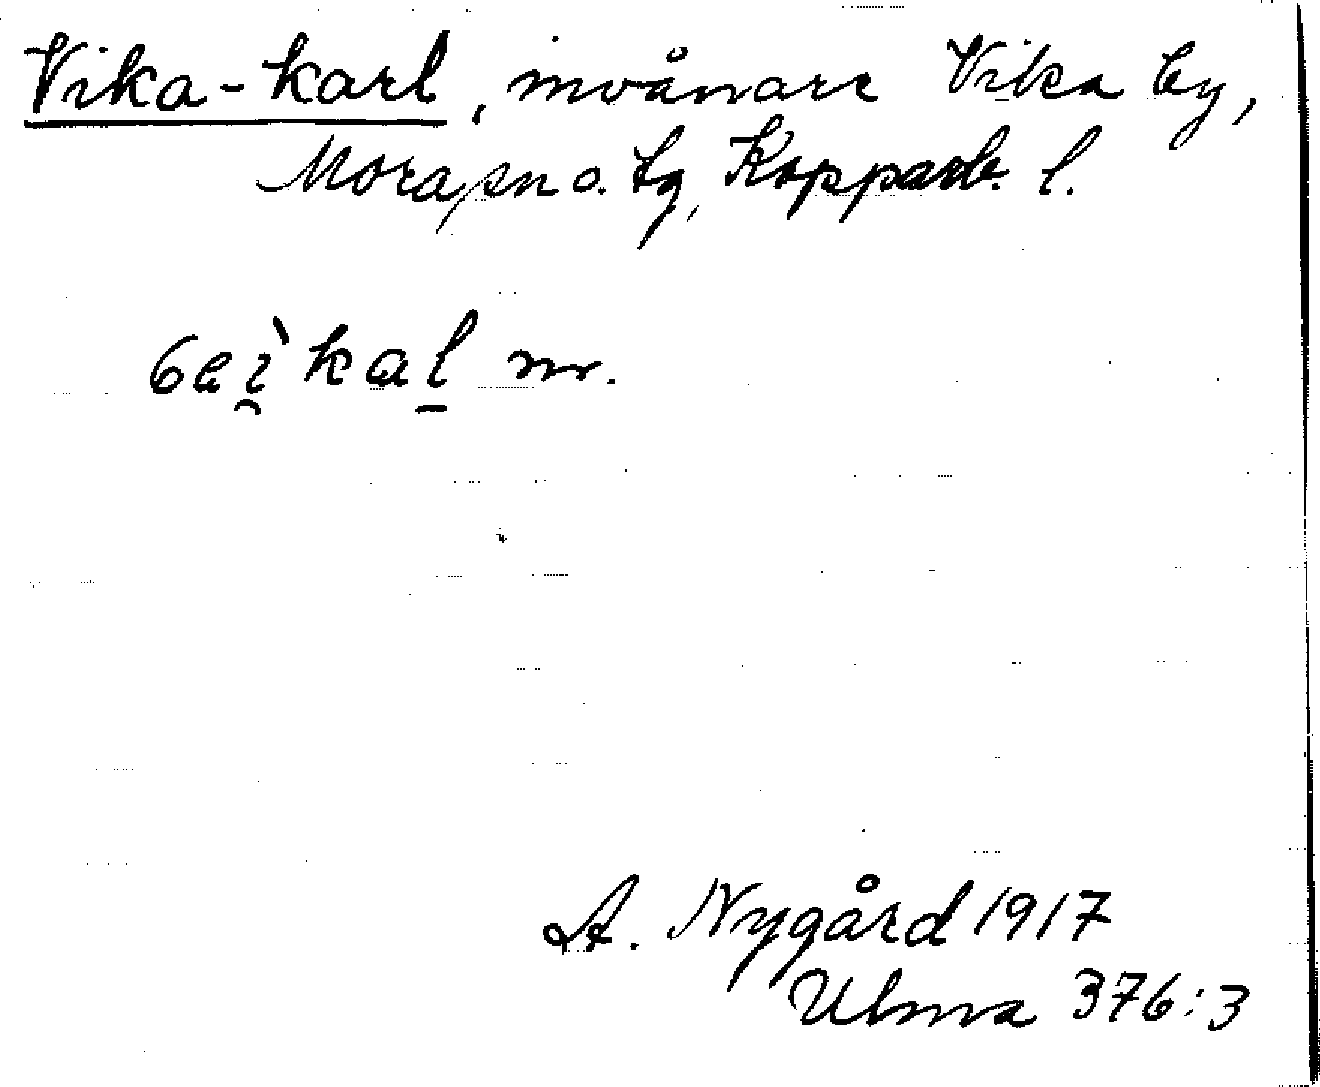 Vika-karl, invånare Vika by,
Mora sn o. tg, Kopparb. l.
m.
A. Nygård 1917
Ulma 376:3